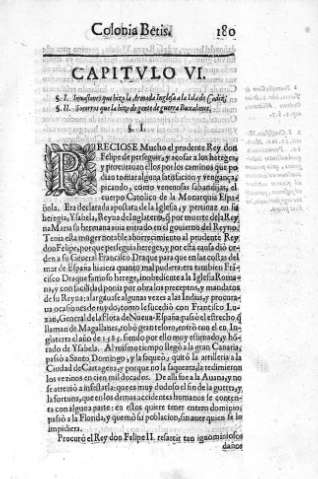 Colonia Betis. 180
CAPITVLO VI.
§. I. Inuasiones que hizo la Armada Inglesa a la Isla de Cadiz.
§. II. Socorros que la hizo de gente de guerra
§. I.
PRECIOSE Mucho el prudente Rey don
Felipe de perseguir, y acosar a los hereges,
y procurauan ellos por los caminos que po
dian tomar alguna satisfacion y vengança,
picando, como venenosas sabandijas, el
cuerpo Catolico de la Monarquia Espa
ñola. Era declarada apostata de la Iglesia, y pertinaz en su
heregia, Ysabela, Reyna de Inglaterra, q̃ por muerte de la Rey
na Maria su hermana auia entrado en el gouierno del Reyno.
Tenia esta muger notable aborrecimiento al prudente Rey
don Felipe, porque perseguia hereges, y por esta causa dio or
den a su General Francisco Draque para que en las costas del
mar de España hiziera quanto mal pudiera. era tambien Frã
cisco Draque famoso herege, inobediente a la Iglesia Roma
na, y con facilidad ponia por obra los preceptos, y mandatos
de su Reyna; alargauase algunas vezes a las Indias, y procura
ua ocasiones de ruydo; como le sucedio con Francisco Lu
xan, General de la flota de Nueua-España passò el estrecho q̃
llaman de Magallanes, robò gran tesoro, entrò con el en In
glaterra el año de 1585. siendo por ello muy estimado, y hõ
rado de Ysabela. Al mismo tiempo llegò a la gran Canaria,
passò a Santo Domingo, y la saqueò, quitò la artilleria a la
Ciudad de Cartagena, y porque no la saqueara, la redimieron
los vezinos en cien mil ducados. De alli fue a la Auana, y no
se atreuiò a inuistirla: que es muy dudoso el fin de la guerra, y
la fortuna, que en los demas accidentes humanos se conten
ta con alguna parte: en estos quiere tener entero dominio;
passò a la Florida, y quemò su poblacion, sin auer quien se lo
impidiera.
Procurò el Rey don Felipe II. resarcir tan ignominiosos
daños